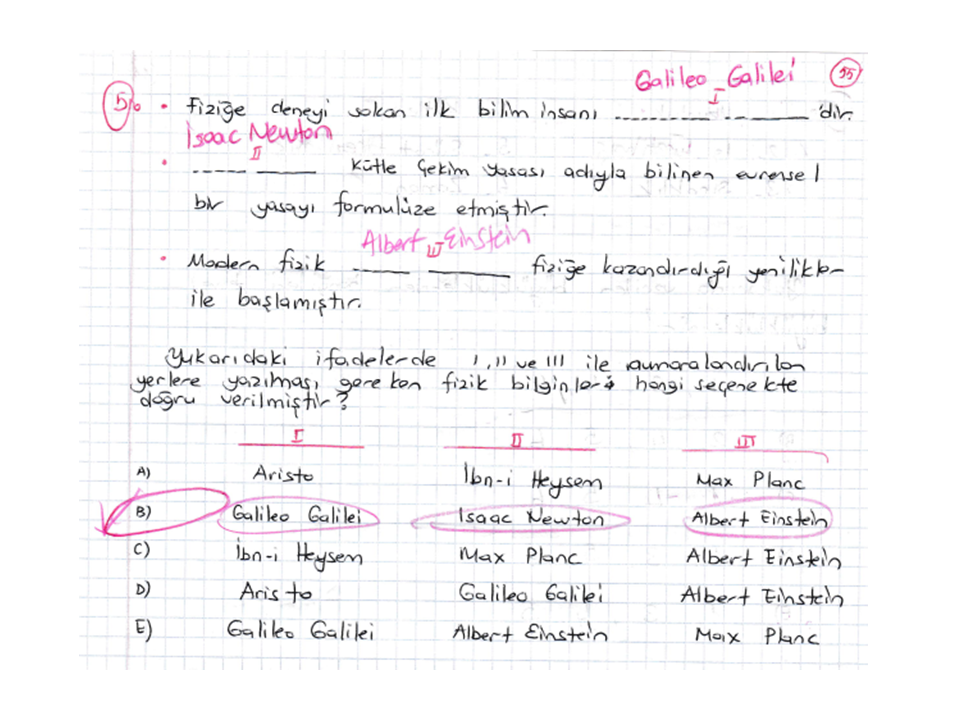 Galileo Galilei 55
I
5) • Fiziğe deneyi sokan ilk bilim insanı ---------- -------- 'dır.
Isaac Newton
II
• ----- ----- Kütle Çekim Yasası adıyla bilinen evrensel
bir yasayı formulüze etmiştir.
Albert Einstein
III
• Modern fizik ----- ------- fiziğe kazandırdığı yenilikler
ile başlamıştır.
Yukarıdaki ifadelerde I, II ve III ile numaralandırılan
yerlere yazılması gereken fizik bilginleri hangi seçenekte
doğru verilmiştir?
I II III
A) Aristo İbn-i Heysem Max Planc
B) Galileo Galilei Isaac Newton Albert Einstein
C) İbn-i Heysem Max Planc Albert Einstein
D) Aristo Galileo Galilei Albert Einstein
E) Galileo Galilei Albert Einstein Max Planc